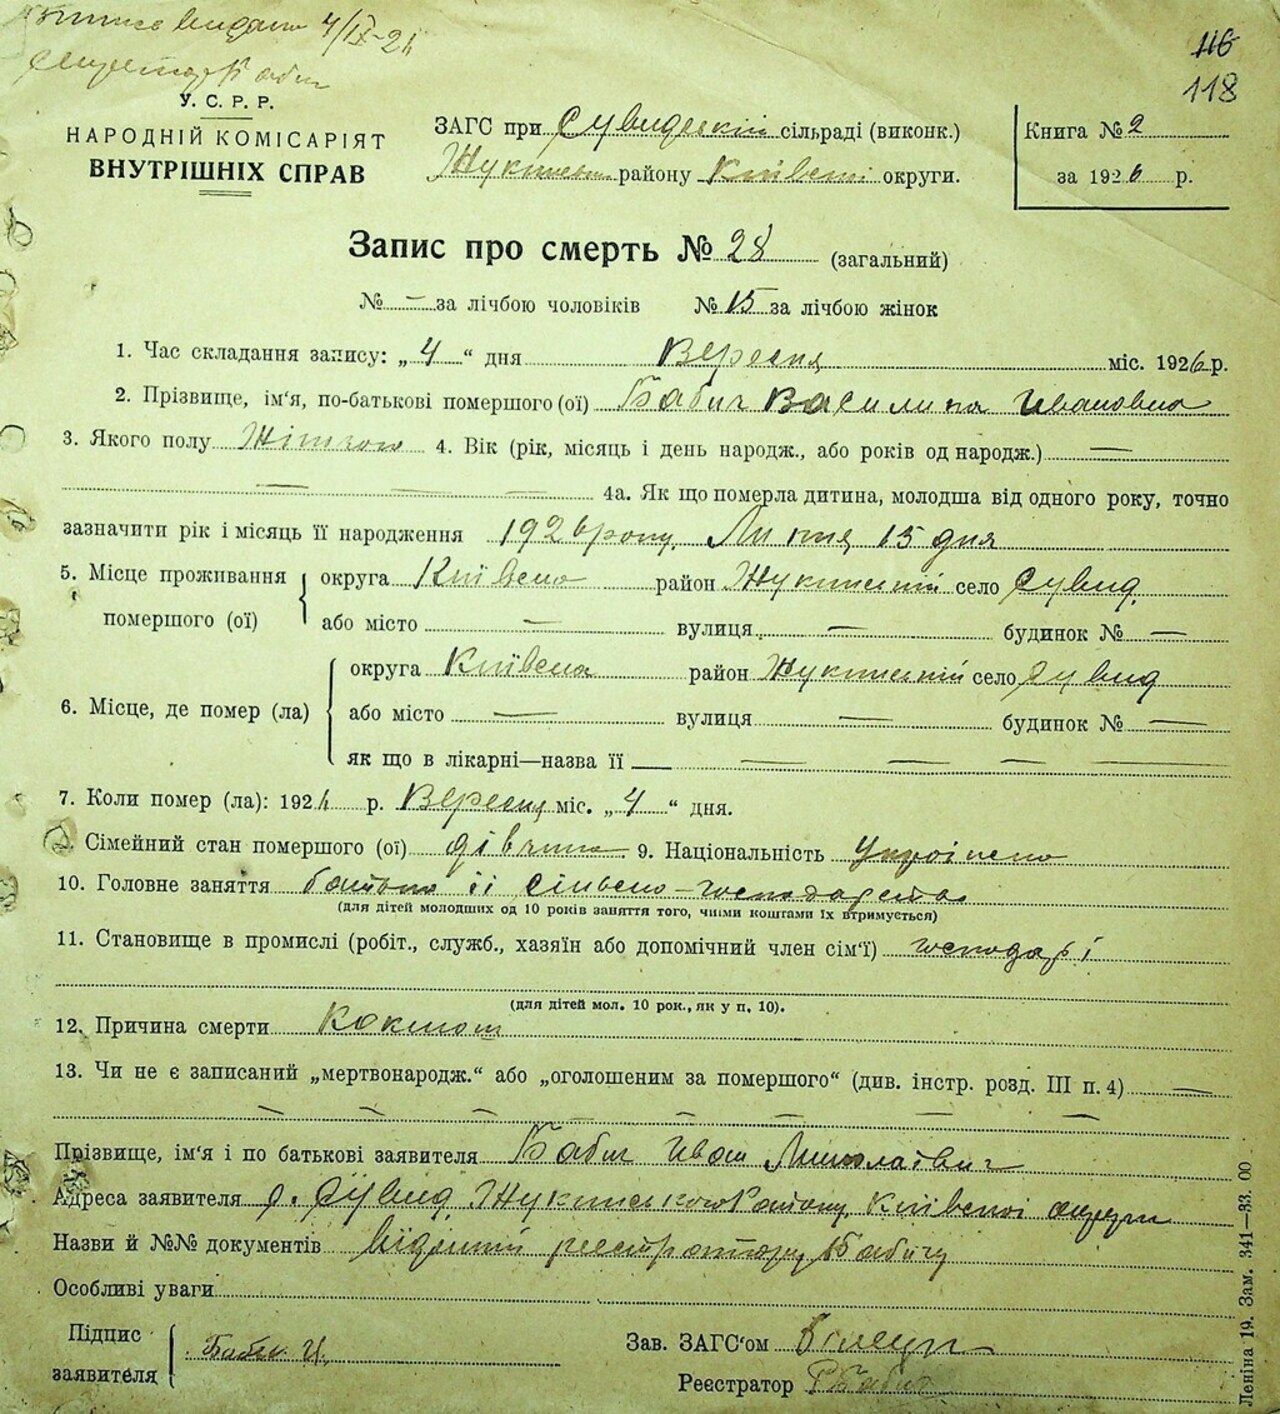 Виписъ видано 4/IX-26
секретар Бабич
116
118
У. С. Р. Р.
НАРОДНІЙ КОМІСАРІЯТ
ВНУТРІШНІХ СПРАВ
ЗАГС при Сувидській сільраді (виконк.)
Жукинськ. району Київськ. округи.
Книга № 2
за 1926 р.
Запис про смерть № 28 (загальний)
№ — за лічбою чоловіків № 15 за лічбою жінок
1. Час складання запису: „4“ дня Вересня міс. 1926 р.
2. Прізвище, ім'я, по-батькові помершого (ої) Бабич Василина Ивановна
3. Якого полу Жіночого 4. Вік (рік, місяць і день народж., або років од народж.) —
— — — 4а. Як що померла дитина, молодша від одного року, точно
зазначити рік і місяць її народження 1926 року, Липня 15 дня
5. Місце проживання помершого (ої) округа Київська район Жукинський село Сувид.
або місто — вулиця — будинок № —
6. Місце, де помер (ла) округа Київська район Жукинський село Сувид
або місто — вулиця — будинок № —
як що в лікарні—назва її — — — — —
7. Коли помер (ла): 1926 р. Вересня міс. „4“ дня.
Сімейний стан помершого (ої) дівчина 9. Національність Украінська
10. Головне заняття батьки її сільсько-господарство
(для дітей молодших од 10 років заняття того, чиїми коштами їх втримується)
11. Становище в промислі (робіт., служб., хазяїн або допомічний член сім'ї) господарі
(для дітей мол. 10 рок., як у п. 10).
12. Причина смерти Коклюш
13. Чи не є записаний „мертвонародж.“ або „оголошеним за помершого“ (див. інстр. розд. III п. 4) —
— — — — — — — —
Прізвище, ім'я і по батькові заявителя Бабич Иван Миколаєвич
Адреса заявителя с. Сувид, Жукинського Району, Київської округи
Назви й №№ документів відомий реєстратору Бабичу
Особливі уваги
Підпис заявителя Бабич И.
Зав. ЗАГС'ом
Реєстратор РБабич
Леніна 19. Зам. 341—33. 00